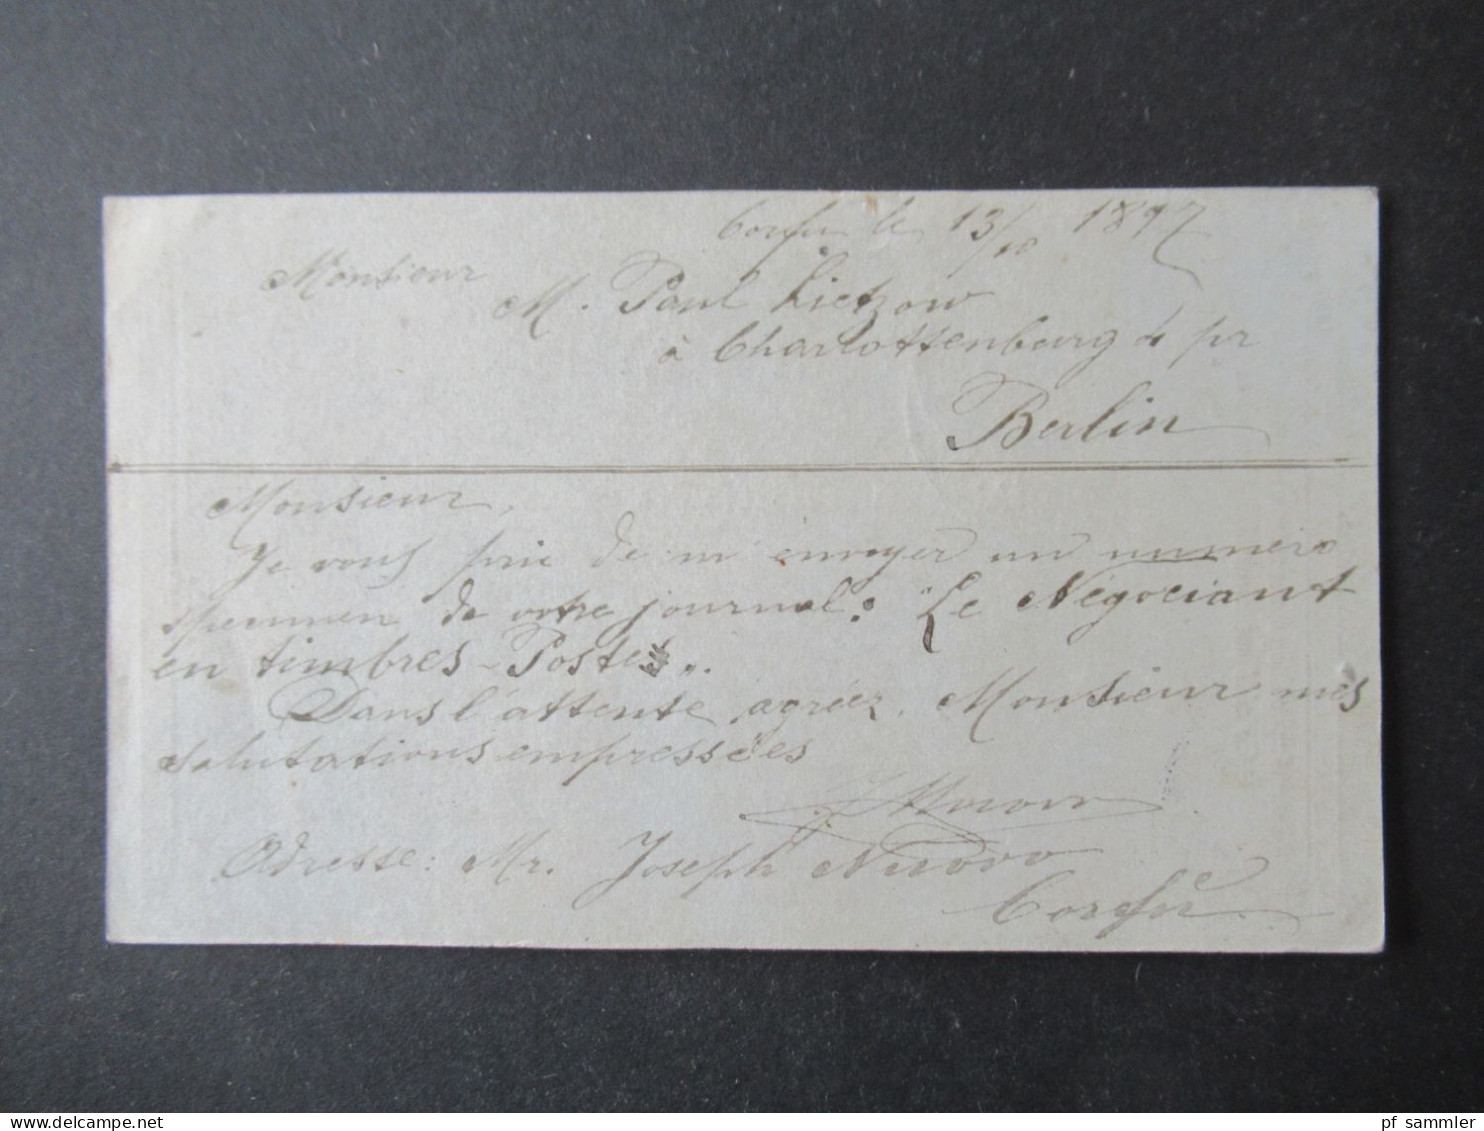 Corfu le 13/10 1897
Monsieur
M. Paul Lietzow
à Charlottenburg 4 pr
Berlin
Monsieur,
Je vous prie de m'envoyer un numero
specimen de votre journal: "Le Négociant
en timbres-Postes".
Dans l'attente agréez, Monsieur mes
salutations empressées
Adresse: Mr. Joseph Nuovo
Corfu
pf_sammler